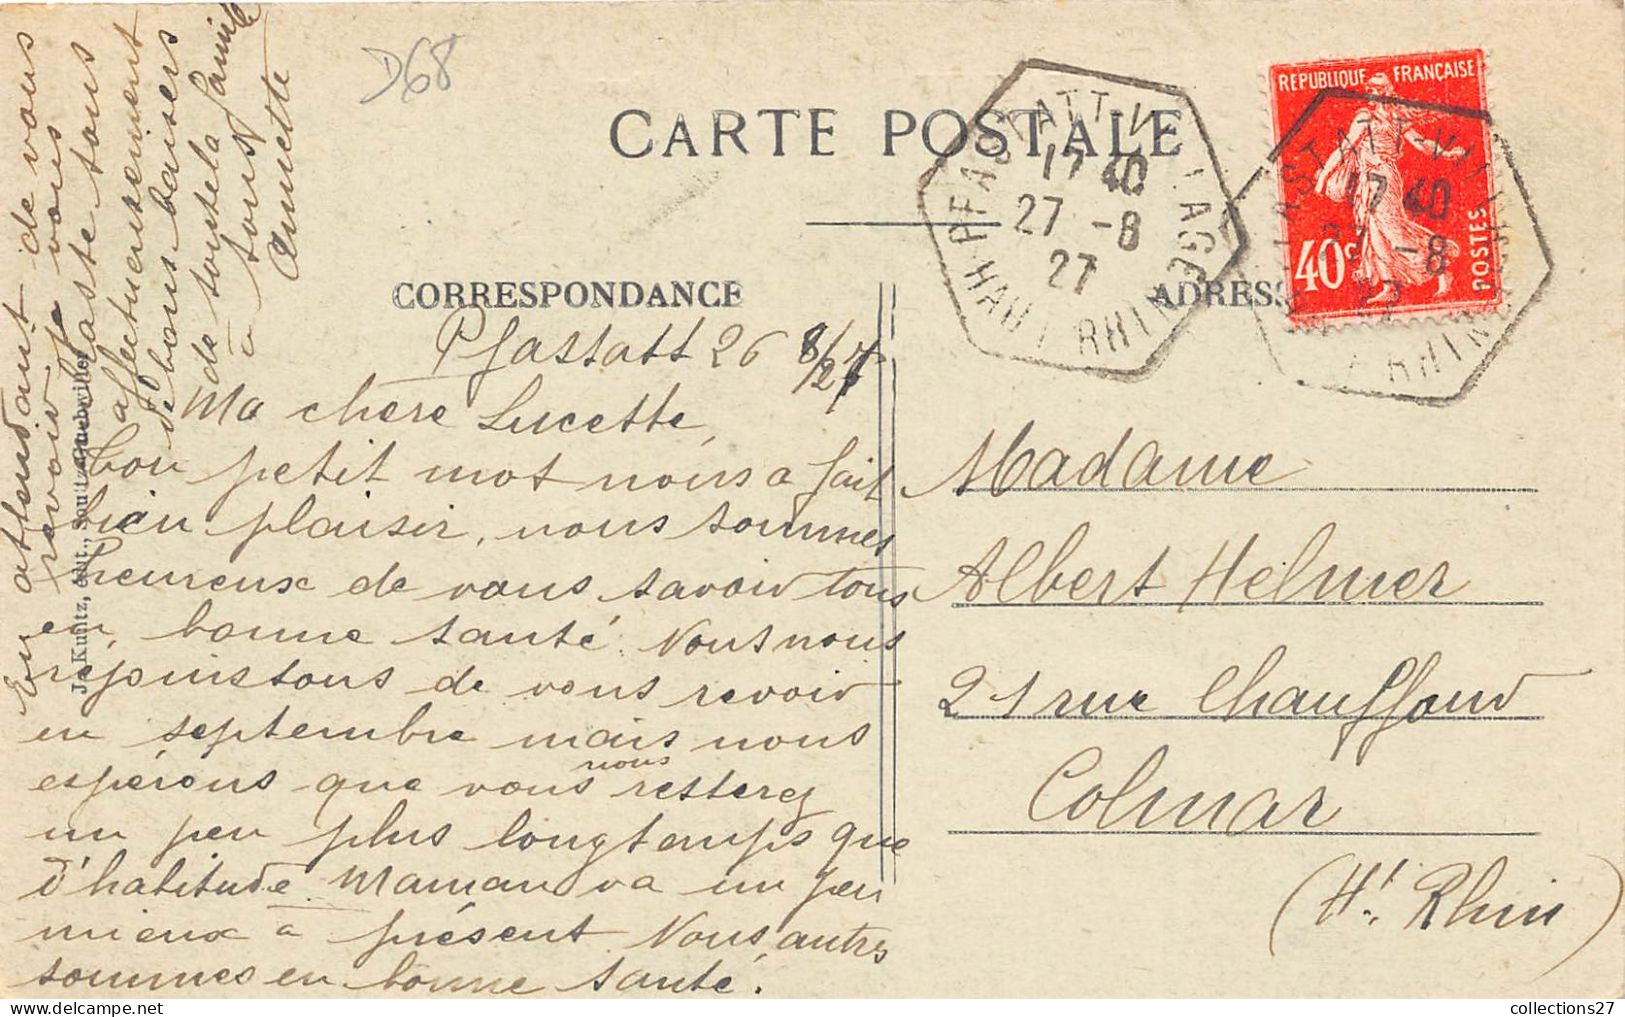 D68
CARTE POSTALE
CORRESPONDANCE
ADRESS
REPUBLIQUE FRANÇAISE
40c
POSTES
PFASTATT-VILLAGE
HAUT RHIN
17 40
27 -8
27
17 40
27 -8
27
Pfastatt 26 8/27
Ma chère Lucette,
Ton petit mot nous a fait
bien plaisir, nous sommes
heureux de vous savoir tous
en bonne santé. Nous nous
réjouissons de vous revoir
en septembre mais nous
espérons que vous nous resterez
un peu plus longtemps que
d'habitude. Maman va un peu
mieux à présent. Nous autres
sommes en bonne santé.
En attendant de vous
revoir je vous
baste tous
affectueusement
de bons baisers
de toute la famille
à tous
Annette
J. Kuntz, édit., Soultz-Guebwiller
Madame
Albert Helmer
21 rue Chauffour
Colmar
(Ht. Rhin)
collections27